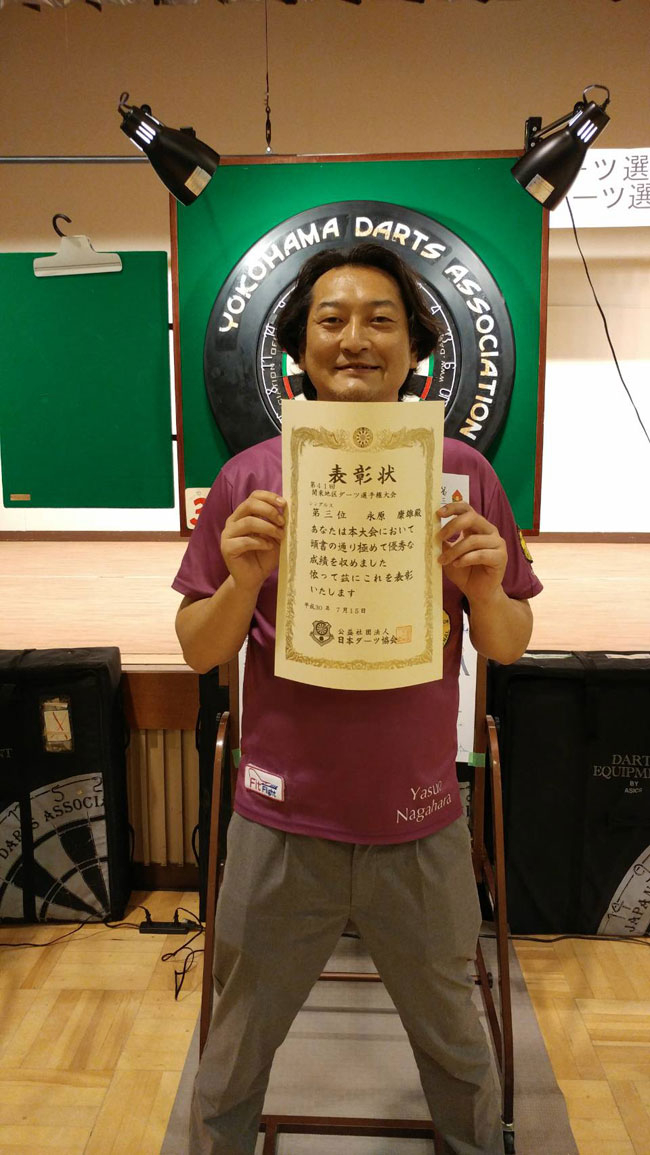 ーツ選
ーツ選
YOKOHAMA DARTS ASSOCIATION
表彰状
第41回
関東地区ダーツ選手権大会
シングルス
第三位 永原 康雄殿
あなたは本大会において
頭書の通り極めて優秀な
成績を収めました
依って茲にこれを表彰
いたします
平成30年 7月15日
公益社団法人
日本ダーツ協会
Fit Flight
Yasuo
Nagahara
DARTS ASSOC
DART
EQUIPMEN
BY
JAPAN